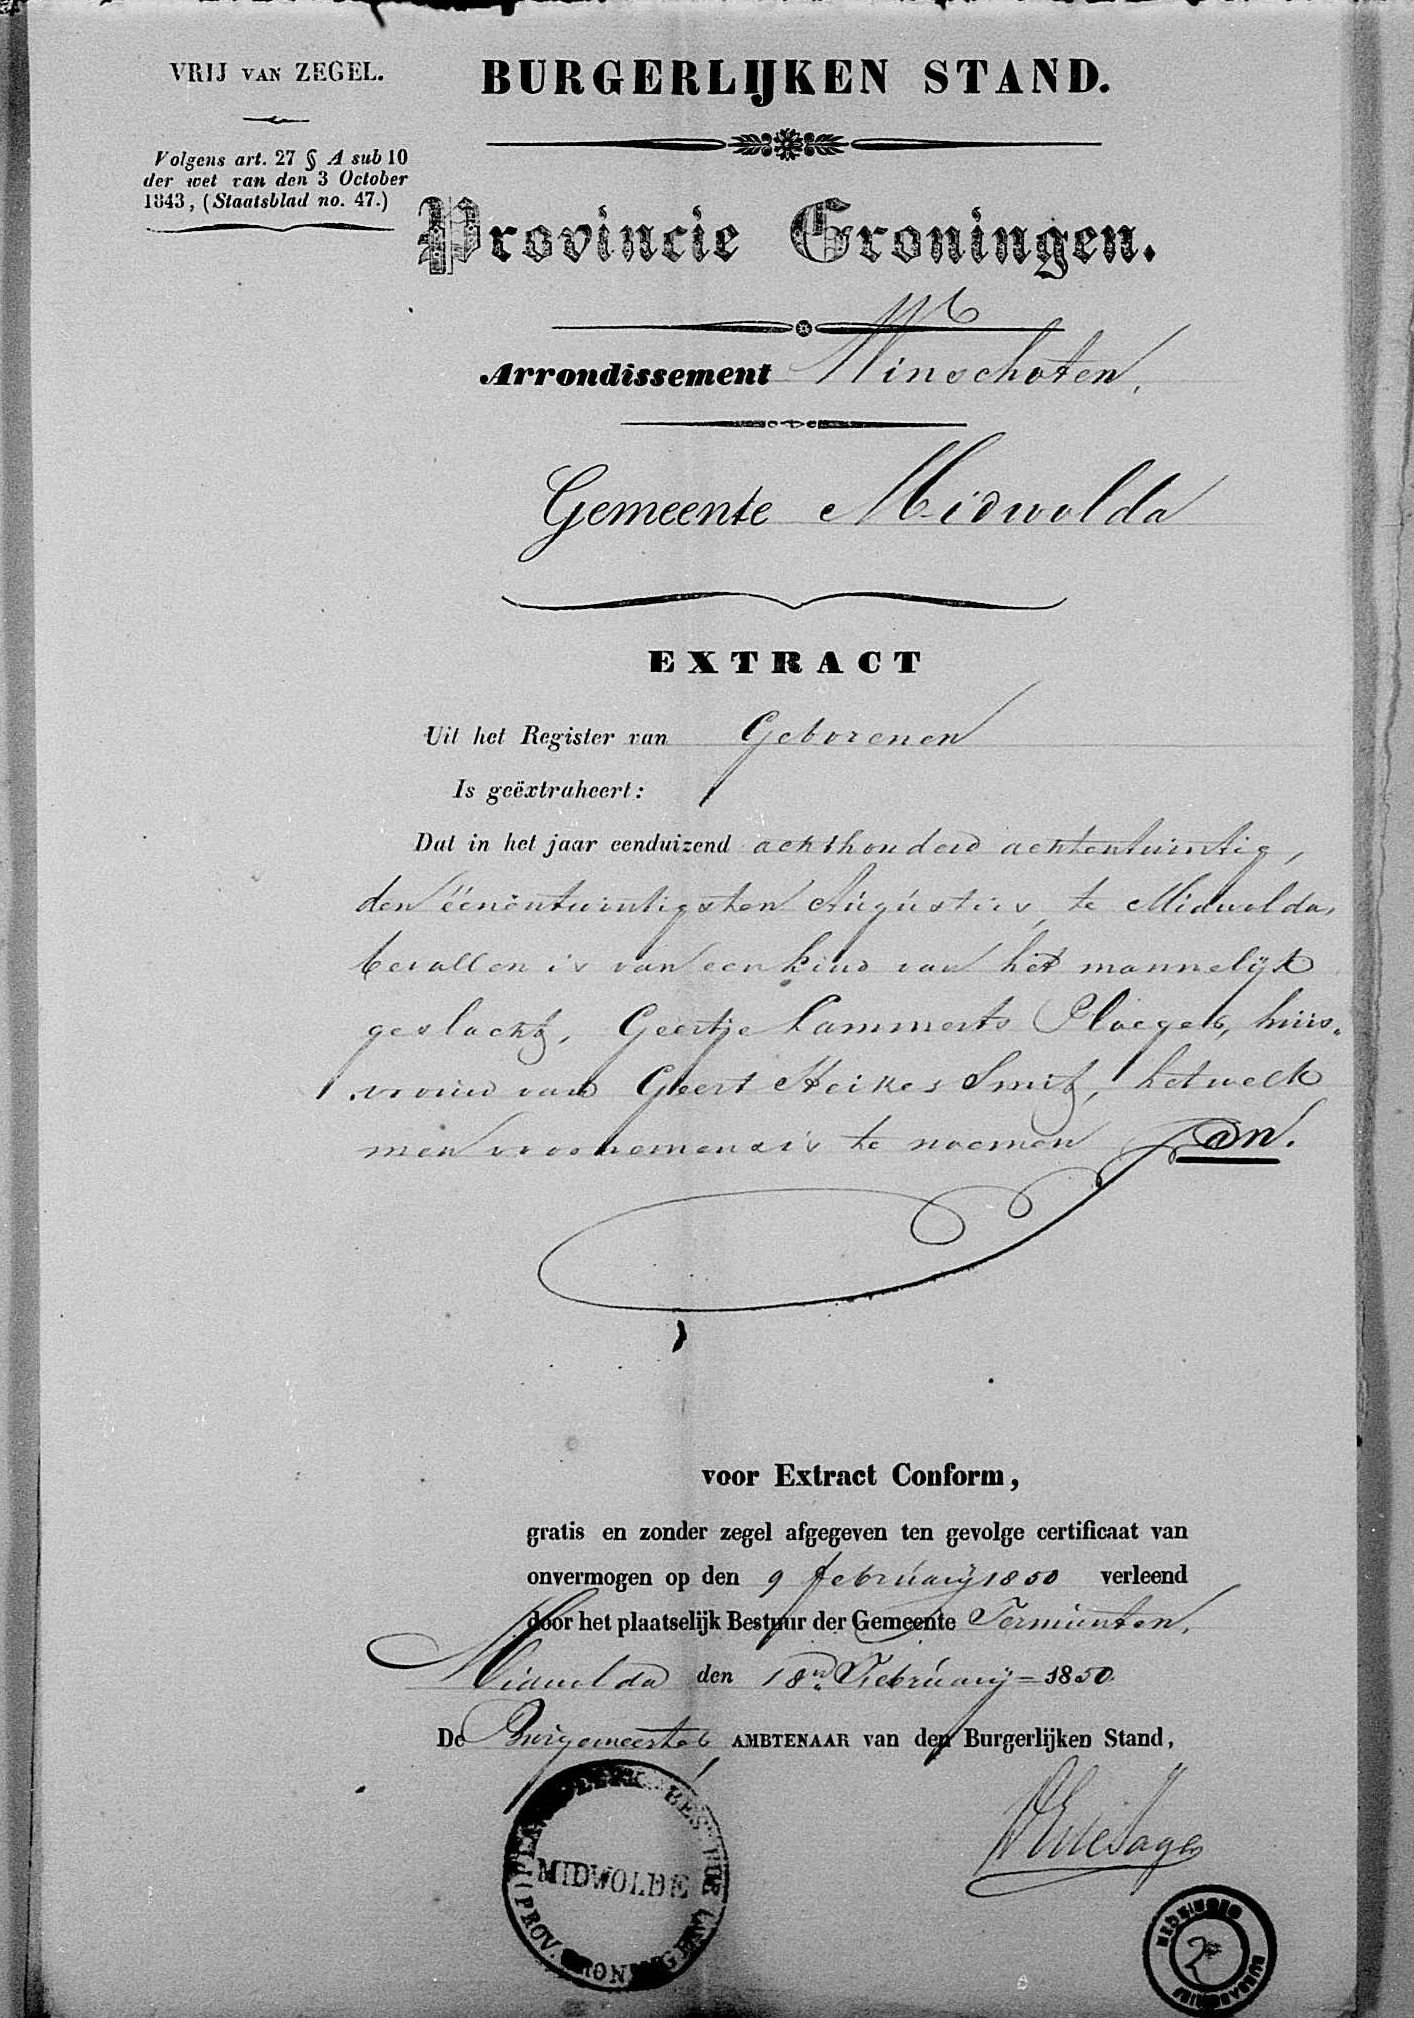 VRIJ VAN ZEGEL.
Volgens art. 27 § A sub 10
der wet van den 3 October
1843, (Staatsblad no. 47.)
BURGERLIJKEN STAND.
Provincie Groningen.
Arrondissement Winschoten,
Gemeente Midwolda
EXTRACT
Uit het Register van Geborenen
Is geëxtraheert:
Dat in het jaar eenduizend achthonderd achtentwintig,
den éénentwintigsten Augustus, te Midwolda,
bevallen is van een kind van het mannelijk
geslacht, Geertje Lammerts Ploeger, huis-
vrouw van Geert Heikes Smit, hetwelk
men voornemens is te noemen Jan.
voor Extract Conform,
gratis en zonder zegel afgegeven ten gevolge certificaat van
onvermogen op den 9 february 1850 verleend
door het plaatselijk Bestuur der Gemeente Termunten,
Midwolda den 18n. February 1850
De Burgemeester, AMBTENAAR van den Burgerlijken Stand,
PLAATSELIJK BESTUUR
MIDWOLDE
(PROV. GRONINGEN)
2e